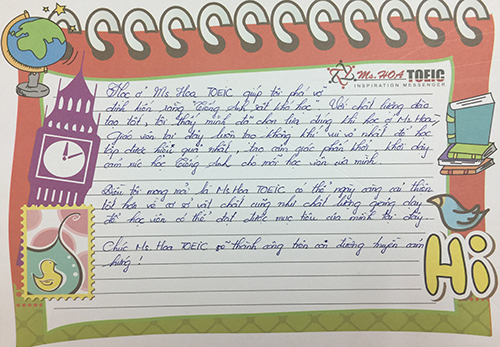 Ms. HOA TOEIC
INSPIRATION MESSENGER
Học ở Ms Hoa TOEIC giúp tôi phá vỡ
định kiến rằng "Tiếng Anh rất khó học". Với chất lượng đào
tạo tốt, tôi thấy mình đã chọn đúng khi học ở Ms Hoa.
Giáo viên tại đây luôn tạo không khí vui vẻ nhất để học
tập được hiệu quả nhất, tạo cảm giác phấn khởi, khơi dậy
cảm xúc học Tiếng Anh cho mỗi học viên của mình.
Điều tôi mong mỏi là Ms Hoa TOEIC có thể ngày càng cải thiện
tốt hơn về cơ sở vật chất cũng như chất lượng giảng dạy
để học viên có thể đạt được mục tiêu của mình tại đây.
Chúc Ms. Hoa TOEIC sẽ thành công trên con đường truyền cảm
hứng!
Hi